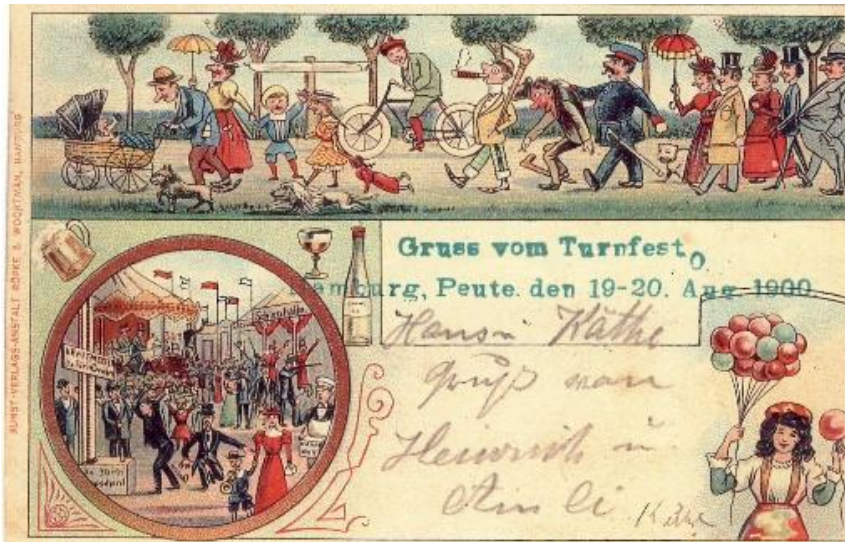 KUNST-VERLAGS-ANSTALT RÖPKE & WOORTMAN, HAMBURG
Gruss vom Turnfest
amburg, Peute. den 19-20. Aug 1900.
Hans u Käthe
Gruß von
Heinrich u